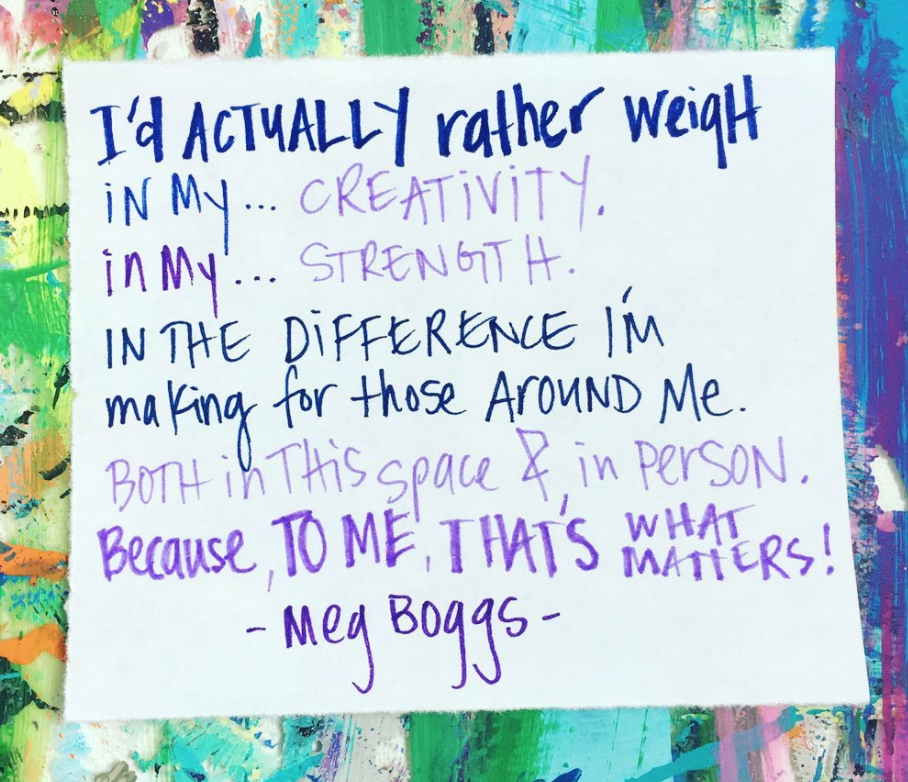 I'd ACTUALLY rather weigH
iN My... CREATiViTY.
in My... STRENGTH.
IN THE DiFFERENCE I'M
making for those AROUND Me.
BOTH in THis space & in PERSON.
Because, TO ME, THAT'S WHAT MATTERS!
- Meg Boggs -